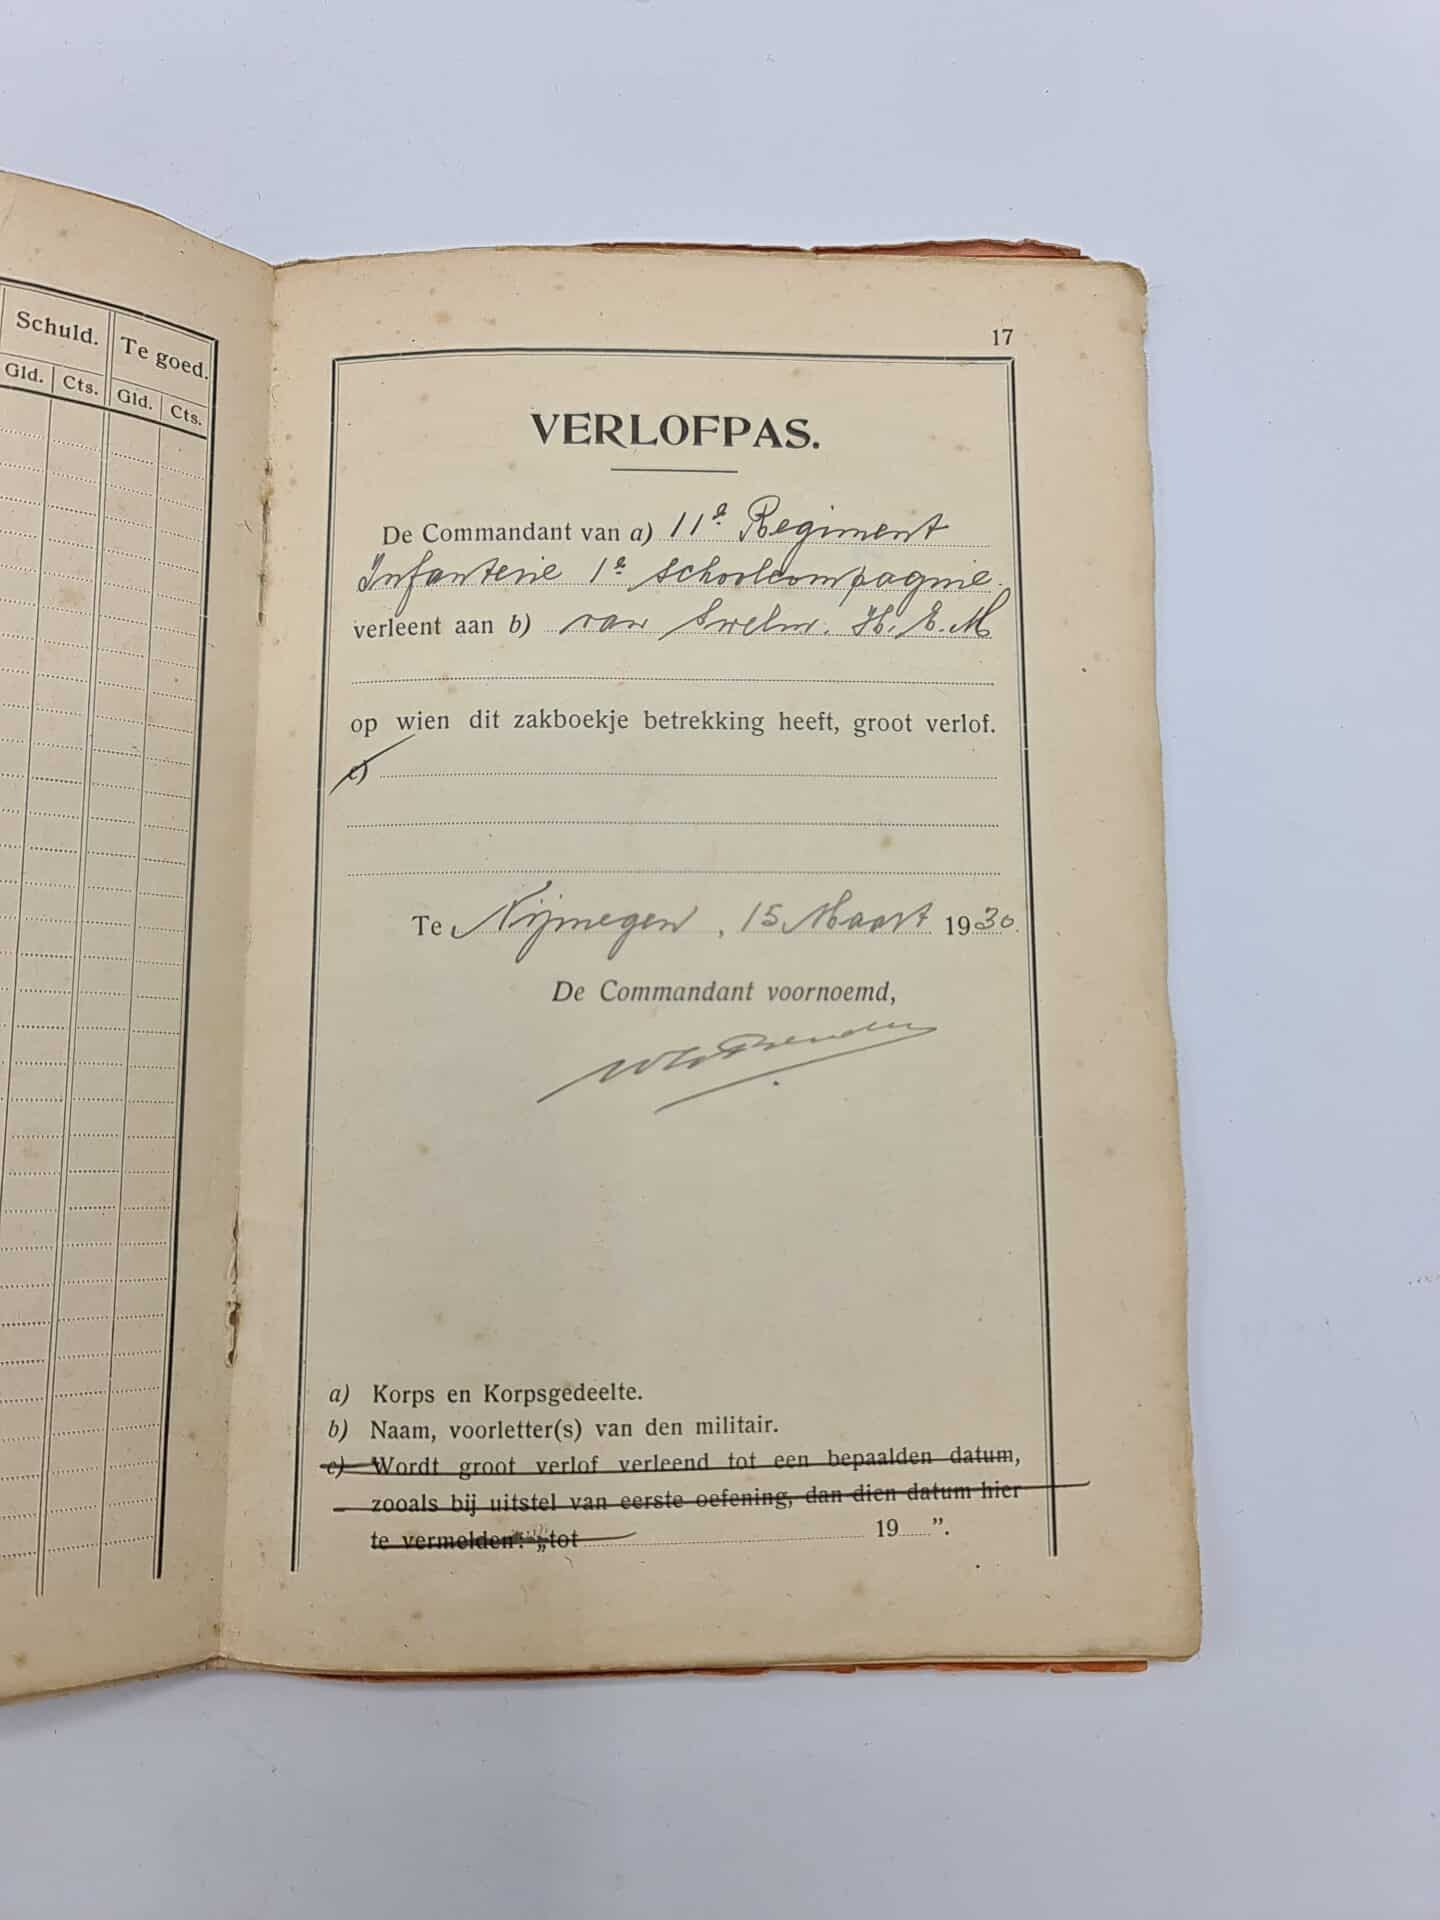 Schuld. Te goed.
Gld. Cts. Gld. Cts.
17
VERLOFPAS.
De Commandant van a) 11e Regiment
Infanterie 1e schoolcompagnie.
verleent aan b) van Swelm. H. E. M
op wien dit zakboekje betrekking heeft, groot verlof.
c)
Te Nijmegen, 15 Maart 1930.
De Commandant voornoemd,
a) Korps en Korpsgedeelte.
b) Naam, voorletter(s) van den militair.
c) Wordt groot verlof verleend tot een bepaalden datum,
zooals bij uitstel van eerste oefening, dan dien datum hier
te vermelden: „tot 19 ”.